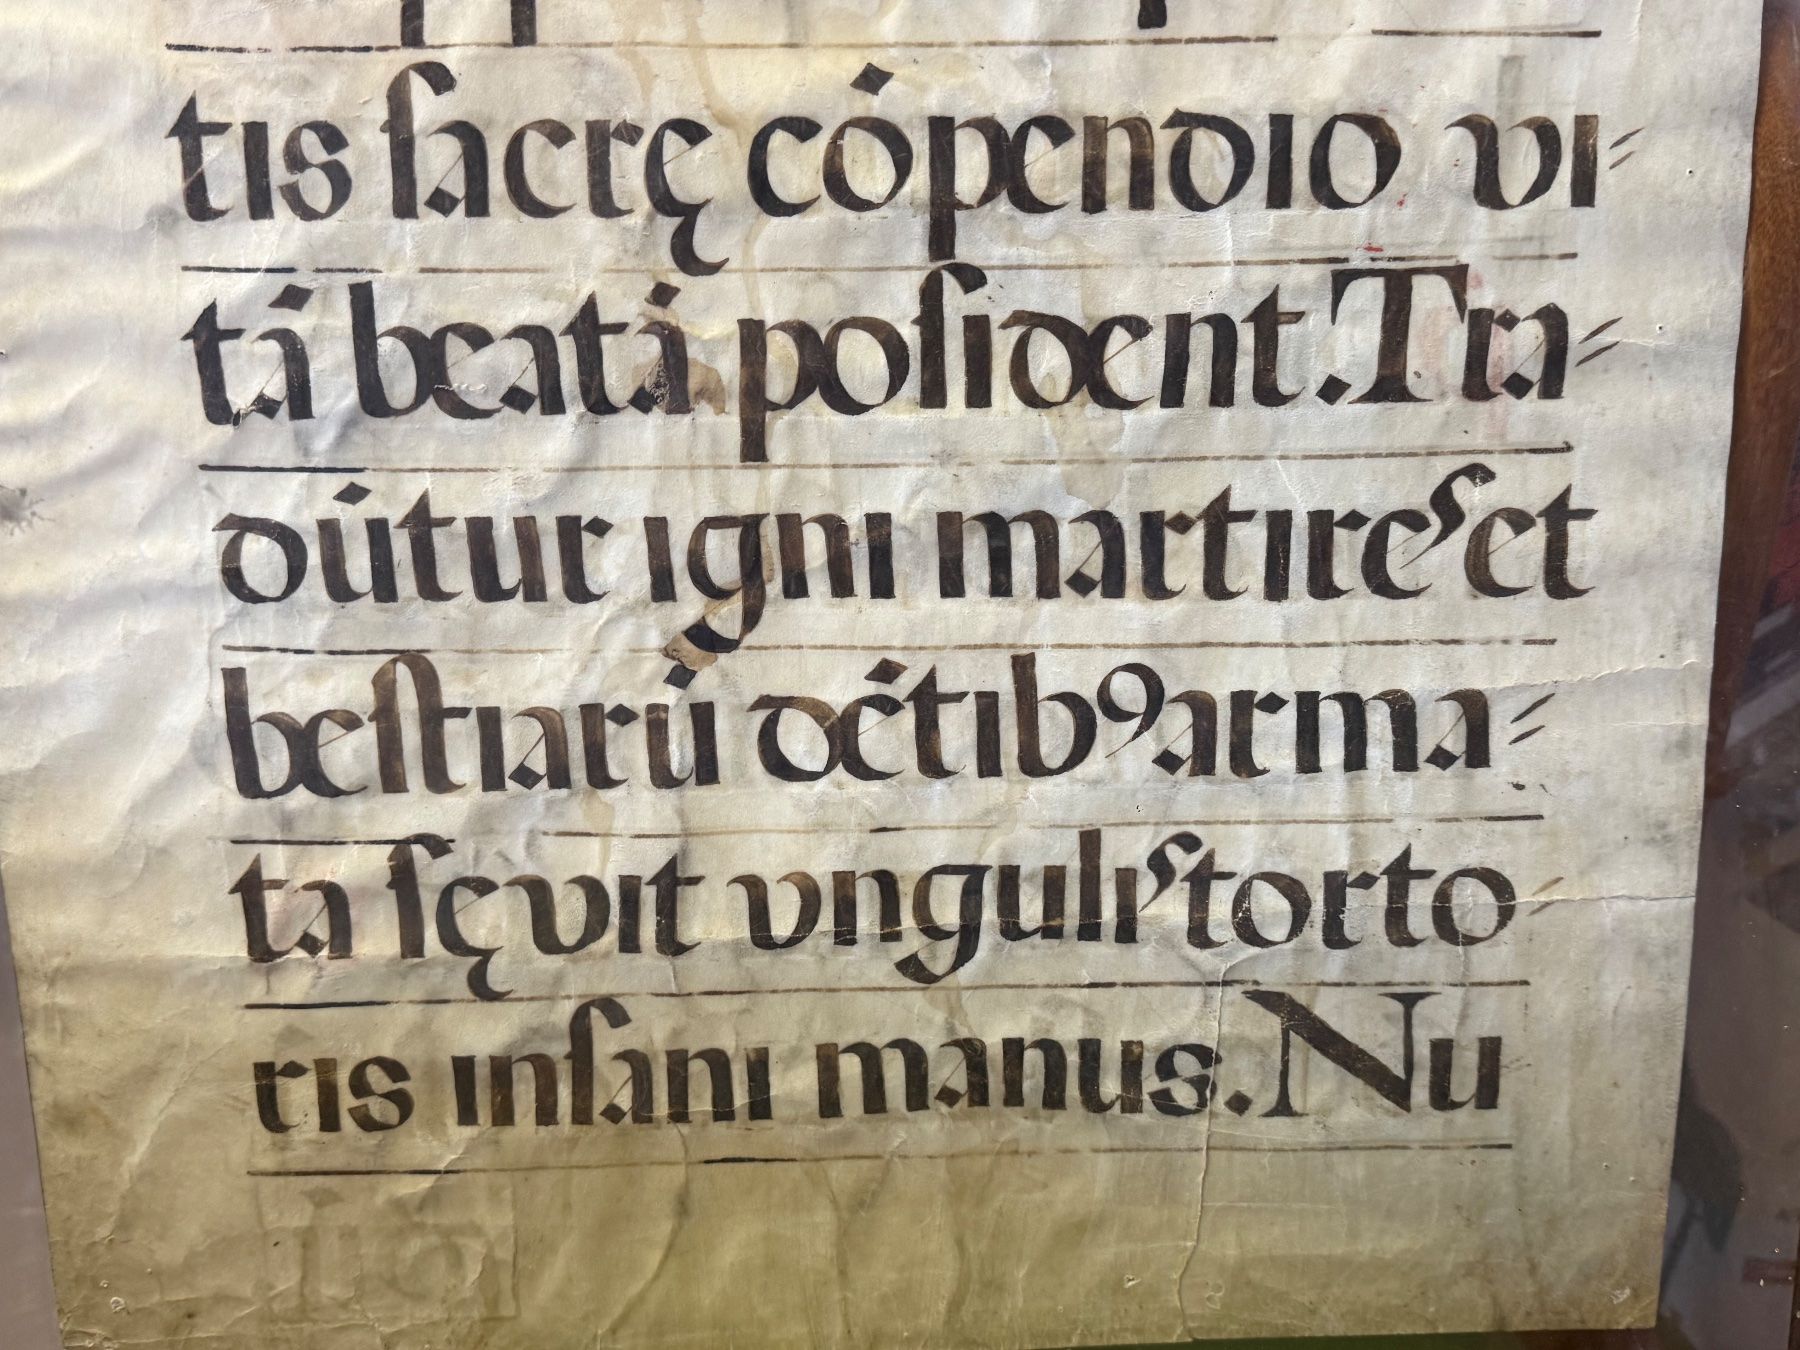 tis sacrę cópendio vi⸗
tá beatá posident. Tra⸗
dútur igni martires et
bestiarú détibꝰ arma⸗
ta sęvit vngulis torto⸗
ris insani manus. Nu